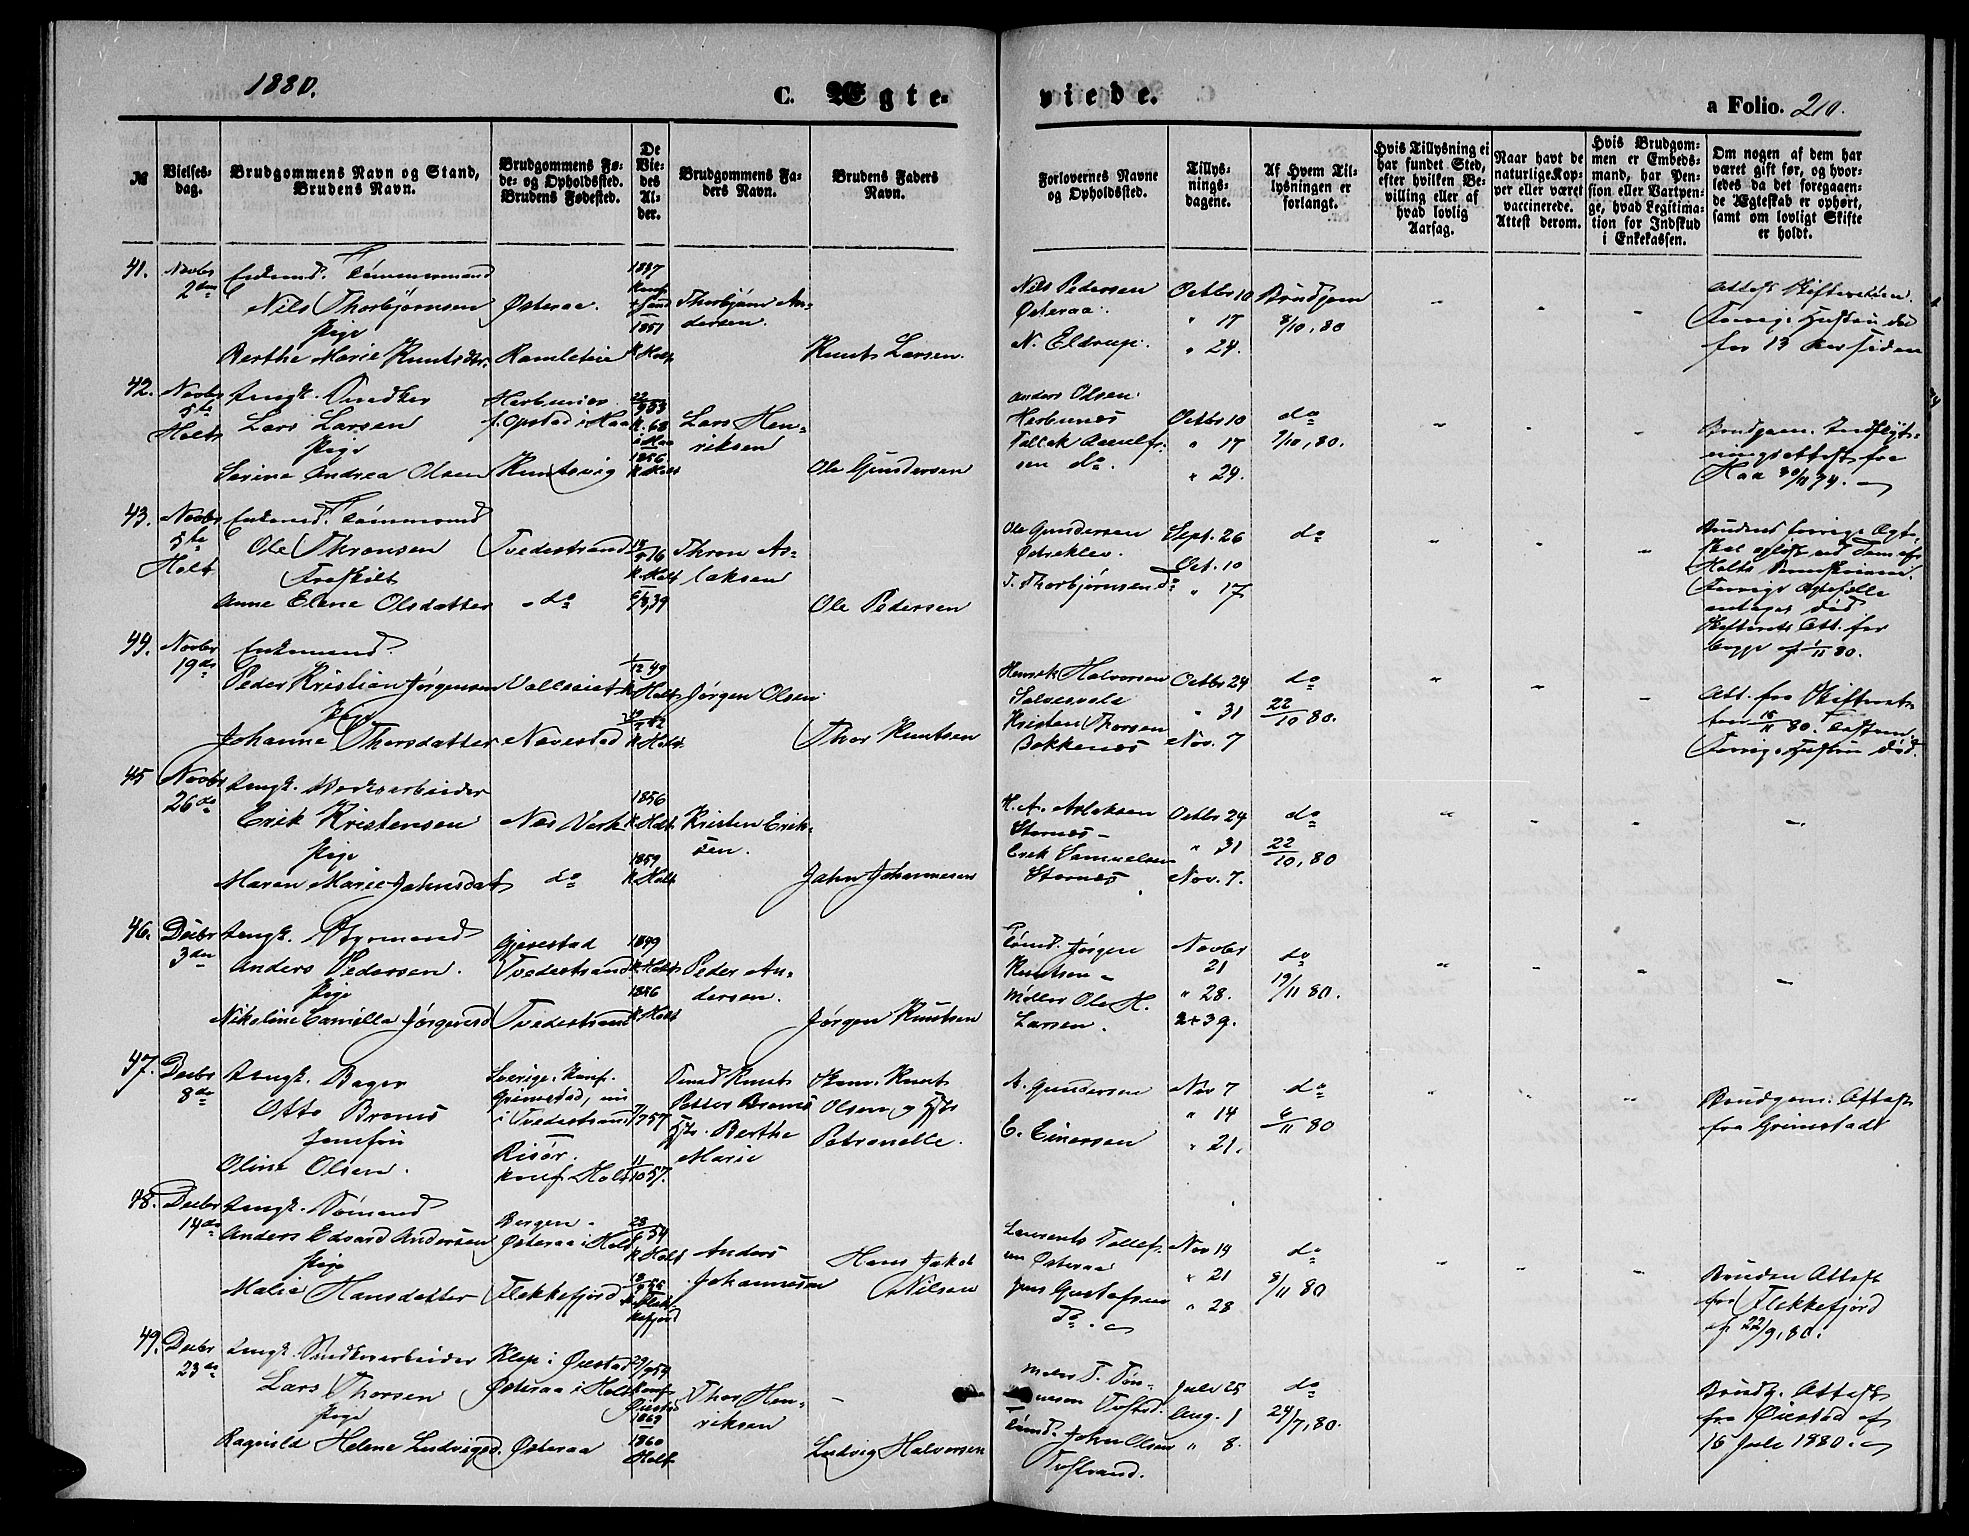 1880.
C. Ægte-
viede.
a Folio. 210.
№
Vielses-
dag.
Brudgommens Navn og Stand,
Brudens Navn.
Brudgommens Fø-
de- og Opholdssted.
Brudens Fødested.
De
Vie-
des
Al-
der.
Brudgommens Fa-
ders Navn.
Brudens Faders
Navn.
Forlovernes Navne
og Opholdssted.
Tillys-
nings-
dagene.
Af Hvem Til-
lysningen er
forlangt.
Hvis Tillysning ei
har fundet Sted,
efter hvilken Be-
villing eller af
hvad lovlig
Aarsag.
Naar havt de
naturlige Kop-
per eller været
vaccinerede.
Attest derom.
Hvis Brudgom-
men er Embeds-
mand, har Pen-
sion eller Vartpen-
ge, hvad Legitima-
tion for Indskud
i Enkekassen.
Om nogen af dem har
været gift før, og hvor-
ledes da det foregaaen-
de Ægteskab er ophørt,
samt om lovligt Skifte
er holdt.
41. Novbr 2den
Enkemd. Tömmermand
Nils Thorbjørnsen
Pige
Berthe Marie Knutsdtr.
Østeraa.
1851
K. Holt
Thorbjørn An-
dersen.
Knut Larsen.
Nils Pedersen
Østeraa.
N. Eldrup.
Octbr 10
" 17
" 24.
Brudgom
8/10, 80
Forrige Hustru död
for 13 Aar siden
42. Novbr 5te Holt
Ungk. Snedker
Lars Larsen
Pige
Serine Andrea Olsen
Knutsvig
1856
K. Holt
Lars Hen-
riksen
Ole Gundersen
Anders Olsen
Octbr 10
" 17
" 24.
do
9/10, 80.
Brudgom. Indflyt-
ningsattest fra
Haa
43. Novbr 5te Holt
Enkemd. Tömmermd
Ole Thronsen
Fraskilt
Anne Elene Olsdatter
Tvedestrand
" do
K. Holt
Thron As-
laksen
Ole Pedersen
Ole Gundersen
Østreklev.
T. Thorbjørnsen do
Sept. 26
Oct. 10
" 17
do
Brudens forrige Ægte-
skab opløst ved Dom af
Forrige Ægtefælle
antages död
begge af 1/11 80.
44. Novbr 19de
Enkemand
Peder Kristian Jørgensen
Pige
Johanne Thorsdatter
Navestad
1/12 49
K. Holt
K. Holt
Jørgen Olsen
Thor Knutsen
Henrik Halvorsen
Kristen Thorsen
Bakkenes
Octbr 24
" 31
Nov. 7
do
22/10 80.
Att. fra Skifteret-
Forrige Hustru död.
45 Novbr 26de
Ungk. Verksarbeider
Erik Kristensen
Pige
Maren Marie Jahnsdat
Næs Verk
do
1856
K. Holt
1859
K. Holt
Kristen Erik-
sen.
Jahn Johannesen
H. A. Aslaksen
Stornes
Erik Samuelsen
Stornes
Octbr 24
" 31
Nov. 7.
do
22/10, 80
46. Decbr 3den
Anders Pedersen.
Pige
Nikoline Camilla Jørgensd
Gjerestad
Tvedestrand
Tvedestrand
1849
K. Holt
1856
K. Holt
Peder An-
dersen.
Jørgen Knutsen
Tømd. Jørgen
Knutsen
Møller Ole H.
Larsen.
Novbr
21
" 28.
2+3 g.
do
19/11 80.
47. Decbr 8de
Ungk. Bager
Otto Broms
Jomfru
Oline Olsen.
Sverige. Konf.
Grimstad, nu
i Tvedestrand
Risør.
Konf. Holt
11/10 57.
Hstr. Berthe
Marie
Olsen og Hstr
Petronelle.
A. Gundersen
E. Einersen
Nov 7
" 14
" 21.
do
6/11 80
Brudgom: Attest
fra Grimstad
48. Decbr 14de
Ungk. Sömand
Anders Edvard Andersen
Pige
Malie Hansdatter
Bergen.
Østeraa i Holt
Flekkefjord
K. Holt
Flek-
kefjord
Anders
Johannesen
Hans Jakob
Nilsen
Laurents Tollef-
sen Østeraa
Jens Gustafsen
Do.
Nov 14
" 21
" 28
do
8/11 80
Bruden Attest
fra Flekkefjord
af 22/9, 80.
49. Decbr 23de
Ungk. Snedkerarbeider
Lars Thorsen
Pige
Ragnild Helene Ludvigsd.
Klep i Øiestad
Østeraa i Holt
Østeraa
Konf.
Øiestad
1869
1860
Holt
Thor Hen-
riksen
Ludvig Halvorsen
Tømd. John Olsen
Juli 25
Aug. 1
" 8.
do
24/7, 80.
Brudg. Attest
fra Øiestad af
16 Juli 1880.